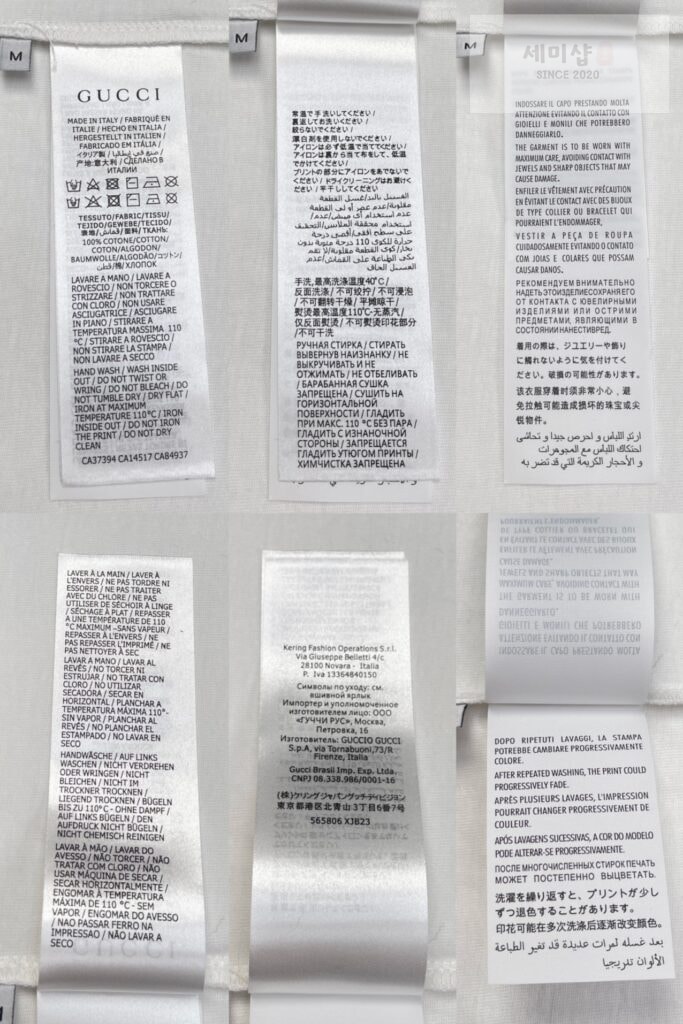 M
GUCCI
MADE IN ITALY / FABRIQUÉ EN
ITALIE / HECHO EN ITALIA /
HERGESTELLT IN ITALIEN /
FABRICADO EM ITÁLIA /
イタリア製 / صنع في ايطاليا /
产地:意大利 / СДЕЛАНО В
ИТАЛИИ
TESSUTO/FABRIC/TISSU/
TEJIDO/GEWEBE/TECIDO/
表地/قماش/面料/ТКАНЬ:
100% COTONE/COTTON/
COTON/ALGODON/
BAUMWOLLE/ALGODÃO/コットン/
قطن/棉/ХЛОПОК
LAVARE A MANO / LAVARE A
ROVESCIO / NON TORCERE O
STRIZZARE / NON TRATTARE
CON CLORO / NON USARE
ASCIUGATRICE / ASCIUGARE
IN PIANO / STIRARE A
TEMPERATURA MASSIMA 110
°C / STIRARE A ROVESCIO /
NON STIRARE LA STAMPA /
NON LAVARE A SECCO
HAND WASH / WASH INSIDE
OUT / DO NOT TWIST OR
WRING / DO NOT BLEACH / DO
NOT TUMBLE DRY / DRY FLAT /
IRON AT MAXIMUM
TEMPERATURE 110°C / IRON
INSIDE OUT / DO NOT IRON
THE PRINT / DO NOT DRY
CLEAN
CA37394 CA14517 CA84937
M
常温で手洗いしてください/
裏返してお洗いください/
絞らないでください/
漂白剤を使用しないでください/
アイロンは必ず低温で当ててください/
アイロンは裏から当て布をして、低温
でかけてください/
プリントの部分にアイロンをあてないで
ください/ドライクリーニングはお避けく
ださい/平干ししてください/
الغسيل باليد/غسيل القطعة
مقلوبة/عدم عصر أو لي القطعة
手洗,最高洗涤温度40℃/
反面洗涤/不可绞拧/不可浸泡
/不可翻转干燥/平摊晾干/
熨烫最高温度110℃-无蒸汽/
仅反面熨烫/不可熨烫印花部分
/不可干洗
РУЧНАЯ СТИРКА / СТИРАТЬ
ВЫВЕРНУВ НАИЗНАНКУ / НЕ
ВЫКРУЧИВАТЬ И НЕ
ОТЖИМАТЬ / НЕ ОТБЕЛИВАТЬ
/ БАРАБАННАЯ СУШКА
ЗАПРЕЩЕНА / СУШИТЬ НА
ГОРИЗОНТАЛЬНОЙ
ПОВЕРХНОСТИ / ГЛАДИТЬ
ПРИ МАКС. 110 °C БЕЗ ПАРА /
ГЛАДИТЬ С ИЗНАНОЧНОЙ
СТОРОНЫ / ЗАПРЕЩАЕТСЯ
ГЛАДИТЬ УТЮГОМ ПРИНТЫ /
ХИМЧИСТКА ЗАПРЕЩЕНА
M
세미샵
SINCE 2020
INDOSSARE IL CAPO PRESTANDO MOLTA
ATTENZIONE EVITANDO IL CONTATTO CON
GIOIELLI E MONILI CHE POTREBBERO
DANNEGGIARLO.
THE GARMENT IS TO BE WORN WITH
MAXIMUM CARE, AVOIDING CONTACT WITH
JEWELS AND SHARP OBJECTS THAT MAY
CAUSE DAMAGE.
ENFILER LE VÊTEMENT AVEC PRÉCAUTION
EN ÉVITANT LE CONTACT AVEC DES BIJOUX
DE TYPE COLLIER OU BRACELET QUI
POURRAIENT L'ENDOMMAGER.
VESTIR A PEÇA DE ROUPA
CUIDADOSAMENTE EVITANDO O CONTATO
COM JOIAS E COLARES QUE POSSAM
CAUSAR DANOS.
РЕКОМЕНДУЕМ ВНИМАТЕЛЬНО
НАДЕТЬ ЭТО ИЗДЕЛИЕ СОХРАНЯЯ ЕГО
ОТ КОНТАКТА С ЮВЕЛИРНЫМИ
ИЗДЕЛИЯМИ ИЛИ ОСТРИМИ
ПРЕДМЕТАМИ, ЯВЛЯЮЩИМИ В
СОСТОЯНИИ НАНЕСТИ ВРЕД.
着用の際は、ジユエリーや飾り
に触れないように気を付けてく
ださい。破損の可能性があります。
该衣服穿着时须非常小心，避
免拉触可能造成损坏的珠宝或尖
锐物件。
ارتدِ اللباس و احرص جيدا و تحاشى
احتكاك اللباس مع المجوهرات
و الأحجار الكريمة التي قد تضر به
LAVER À LA MAIN / LAVER À
L'ENVERS / NE PAS TORDRE NI
ESSORER / NE PAS TRAITER
AVEC DU CHLORE / NE PAS
UTILISER DE SÉCHOIR À LINGE
/ SÉCHAGE À PLAT / REPASSER
A UNE TEMPÉRATURE DE 110
°C MAXIMUM –SANS VAPEUR /
REPASSER À L'ENVERS / NE
PAS REPASSER L'IMPRIMÉ / NE
PAS NETTOYER À SEC
LAVAR A MANO / LAVAR AL
REVÉS / NO TORCER NI
ESTRUJAR / NO TRATAR CON
CLORO / NO UTILIZAR
SECADORA / SECAR EN
HORIZONTAL / PLANCHAR A
TEMPERATURA MÁXIMA 110°-
SIN VAPOR / PLANCHAR AL
REVÉS / NO PLANCHAR EL
ESTAMPADO / NO LAVAR EN
SECO
HANDWÄSCHE / AUF LINKS
WASCHEN / NICHT VERDREHEN
ODER WRINGEN / NICHT
BLEICHEN / NICHT IM
TROCKNER TROCKNEN /
LIEGEND TROCKNEN / BÜGELN
BIS ZU 110°C - OHNE DAMPF /
AUF LINKS BÜGELN / DEN
AUFDRUCK NICHT BÜGELN /
NICHT CHEMISCH REINIGEN
LAVAR À MÃO / LAVAR DO
AVESSO / NÃO TORCER / NÃO
TRATAR COM CLORO / NÃO
USAR MÁQUINA DE SECAR /
SECAR HORIZONTALMENTE /
ENGOMAR À TEMPERATURA
MÁXIMA DE 110 °C - SEM
VAPOR / ENGOMAR DO AVESSO
/ NAO PASSAR FERRO NA
IMPRESSÃO / NÃO LAVAR A
SECO
Kering Fashion Operations S.r.l.
Via Giuseppe Belletti 4/c
28100 Novara - Italia
P. Iva 13364840150
Символы по уходу: см.
вшивной ярлык
Импортер и уполномоченное
изготовителем лицо: ООО
«ГУЧЧИ РУС», Москва,
Петровка, 16
Изготовитель: GUCCIO GUCCI
S.p.A, via Tornabuoni,73/R
Firenze, Italia
Gucci Brasil Imp. Exp. Ltda.
CNPJ 08.338.986/0001-16
(株)ケリングジャパングッチディビジョン
東京都港区北青山3丁目6番7号
565806 XJB23
POURRAIENT L'ENDOMMAGER.
DE TYPE COLLIER OU BRACELET QUI
EN ÉVITANT LE CONTACT AVEC DES BIJOUX
ENFILER LE VÊTEMENT AVEC PRÉCAUTION
CAUSE DAMAGE.
JEWELS AND SHARP OBJECTS THAT MAY
MAXIMUM CARE, AVOIDING CONTACT WITH
THE GARMENT IS TO BE WORN WITH
DANNEGGIARLO.
GIOIELLI E MONILI CHE POTREBBERO
ATTENZIONE EVITANDO IL CONTATTO CON
INDOSSARE IL CAPO PRESTANDO MOLTA
DOPO RIPETUTI LAVAGGI, LA STAMPA
POTREBBE CAMBIARE PROGRESSIVAMENTE
COLORE.
AFTER REPEATED WASHING, THE PRINT COULD
PROGRESSIVELY FADE.
APRÈS PLUSIEURS LAVAGES, L'IMPRESSION
POURRAIT CHANGER PROGRESSIVEMENT DE
COULEUR.
APÓS LAVAGENS SUCESSIVAS, A COR DO MODELO
PODE ALTERAR-SE PROGRESSIVAMENTE.
ПОСЛЕ МНОГОЧИСЛЕННЫХ СТИРОК ПЕЧАТЬ
МОЖЕТ ПОСТЕПЕННО ВЫЦВЕТАТЬ.
洗濯を繰り返すと、プリントが少し
ずつ退色することがあります。
印花可能在多次洗涤后逐渐改变颜色。
بعد غسله لمرات عديدة قد تغير الطباعة
الألوان تدريجيا